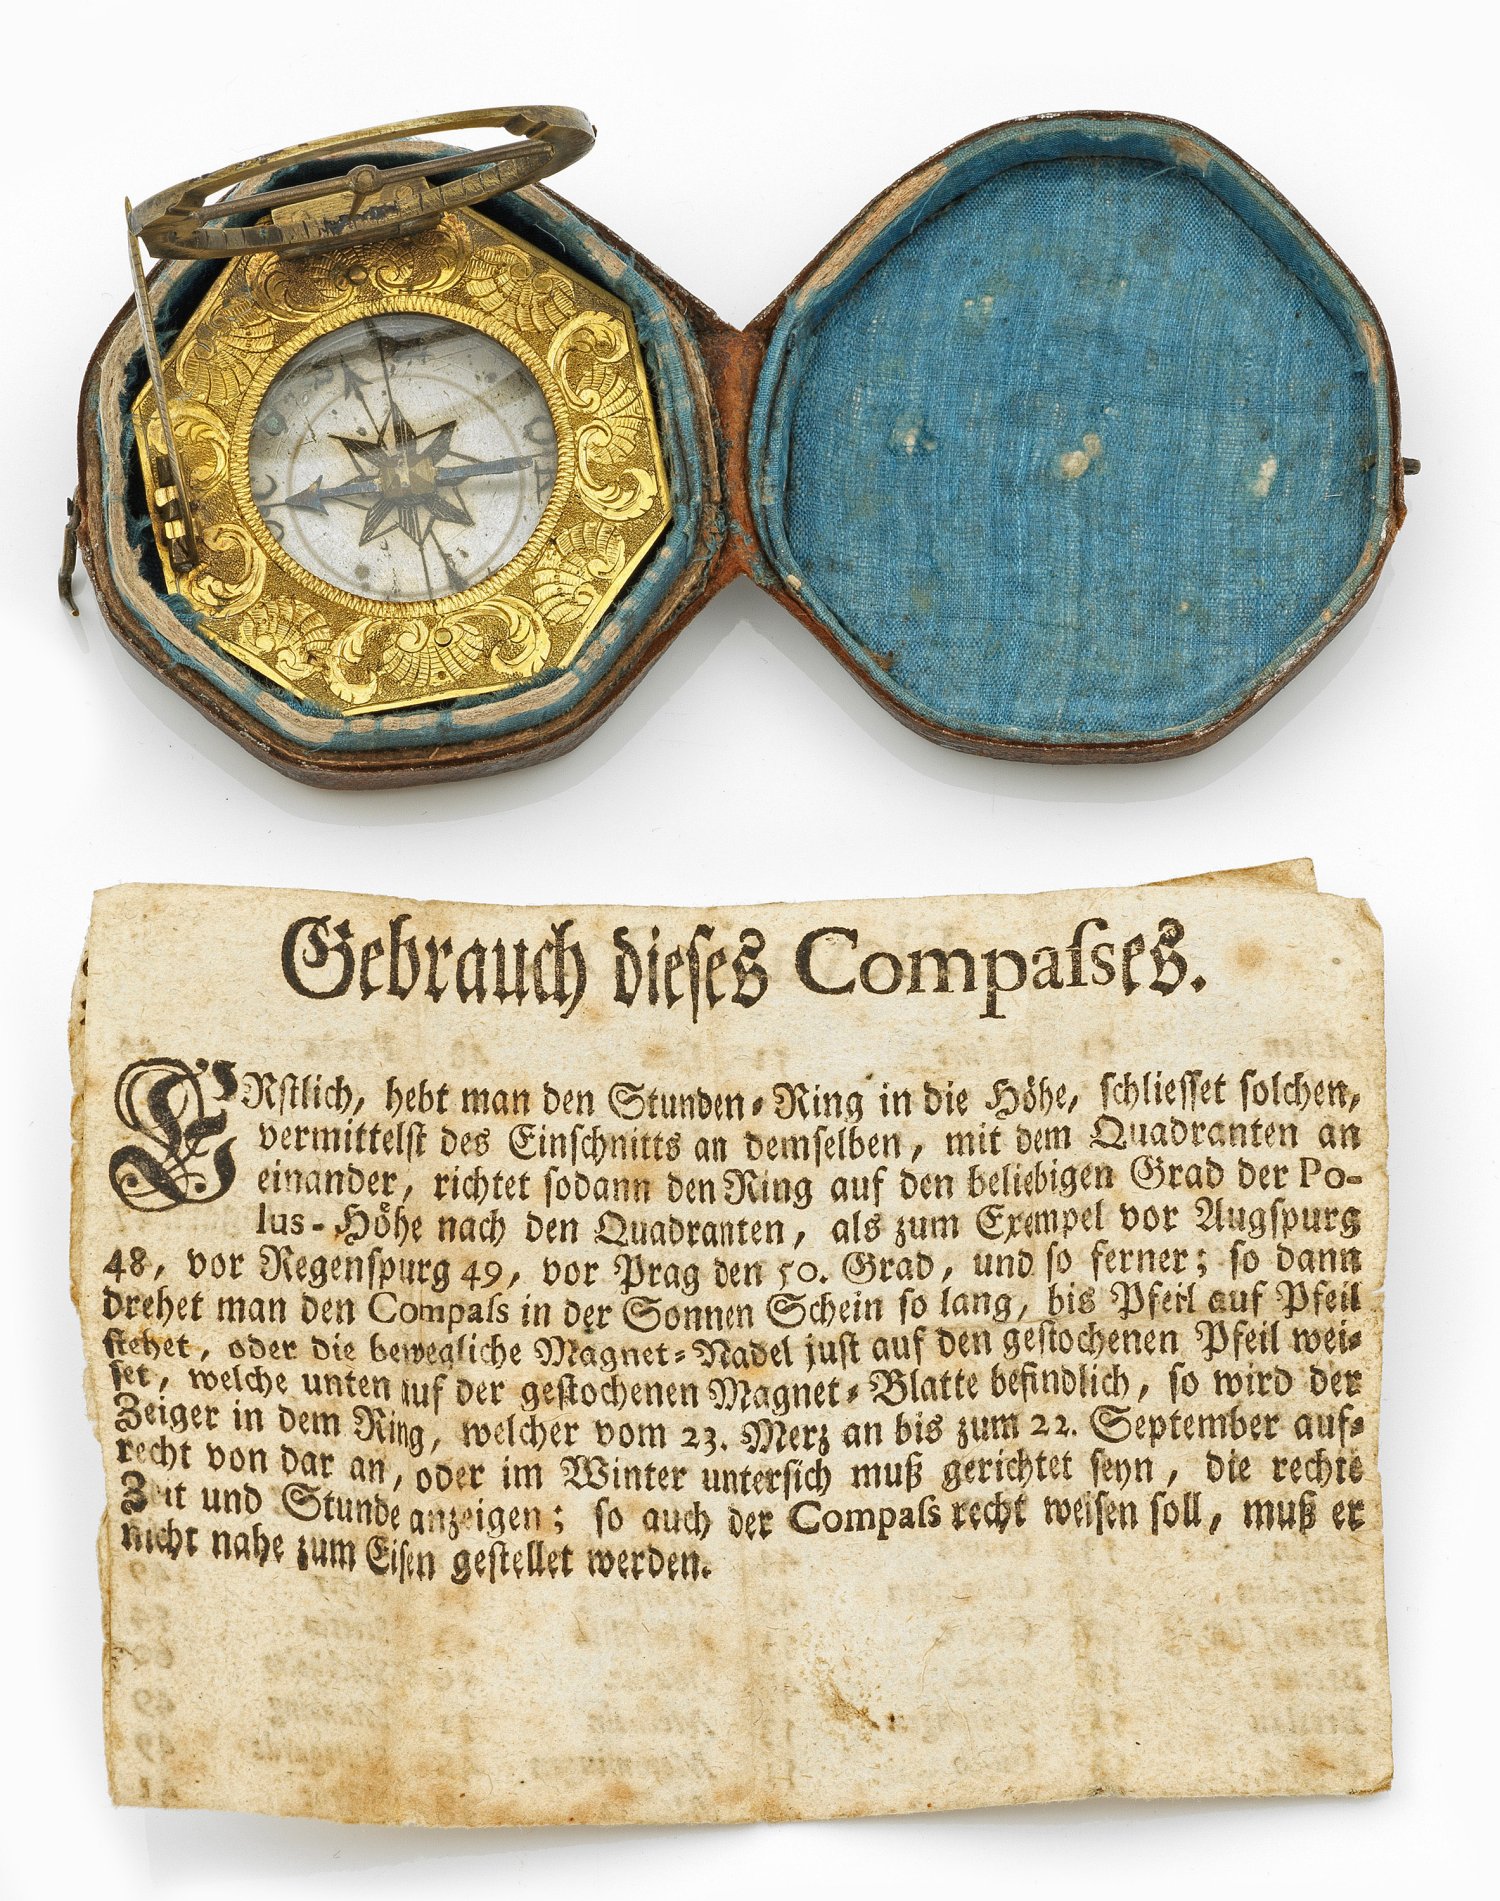 Gebrauch dieses Compaſses.
ERſtlich, hebt man den Stunden-Ring in die Höhe, ſchlieſſet ſolchen,
vermittelſt des Einſchnitts an demſelben, mit dem Quadranten an
einander, richtet ſodann den Ring auf den beliebigen Grad der Po-
lus-Höhe nach den Quadranten, als zum Exempel vor Augſpurg
48, vor Regenſpurg 49, vor Prag den 50. Grad, und ſo ferner; ſo dann
drehet man den Compaſs in der Sonnen Schein ſo lang, bis Pfeil auf Pfeil
ſtehet, oder die bewegliche Magnet-Nadel juſt auf den geſtochenen Pfeil wei-
ſet, welche unten auf der geſtochenen Magnet-Blatte befindlich, ſo wird der
Zeiger in dem Ring, welcher vom 23. Merz an bis zum 22. September auf-
recht von dar an, oder im Winter unterſich muß gerichtet ſeyn, die rechte
Zeit und Stunde anzeigen; ſo auch der Compaſs recht weiſen ſoll, muß er
nicht nahe zum Eiſen geſtellet werden.